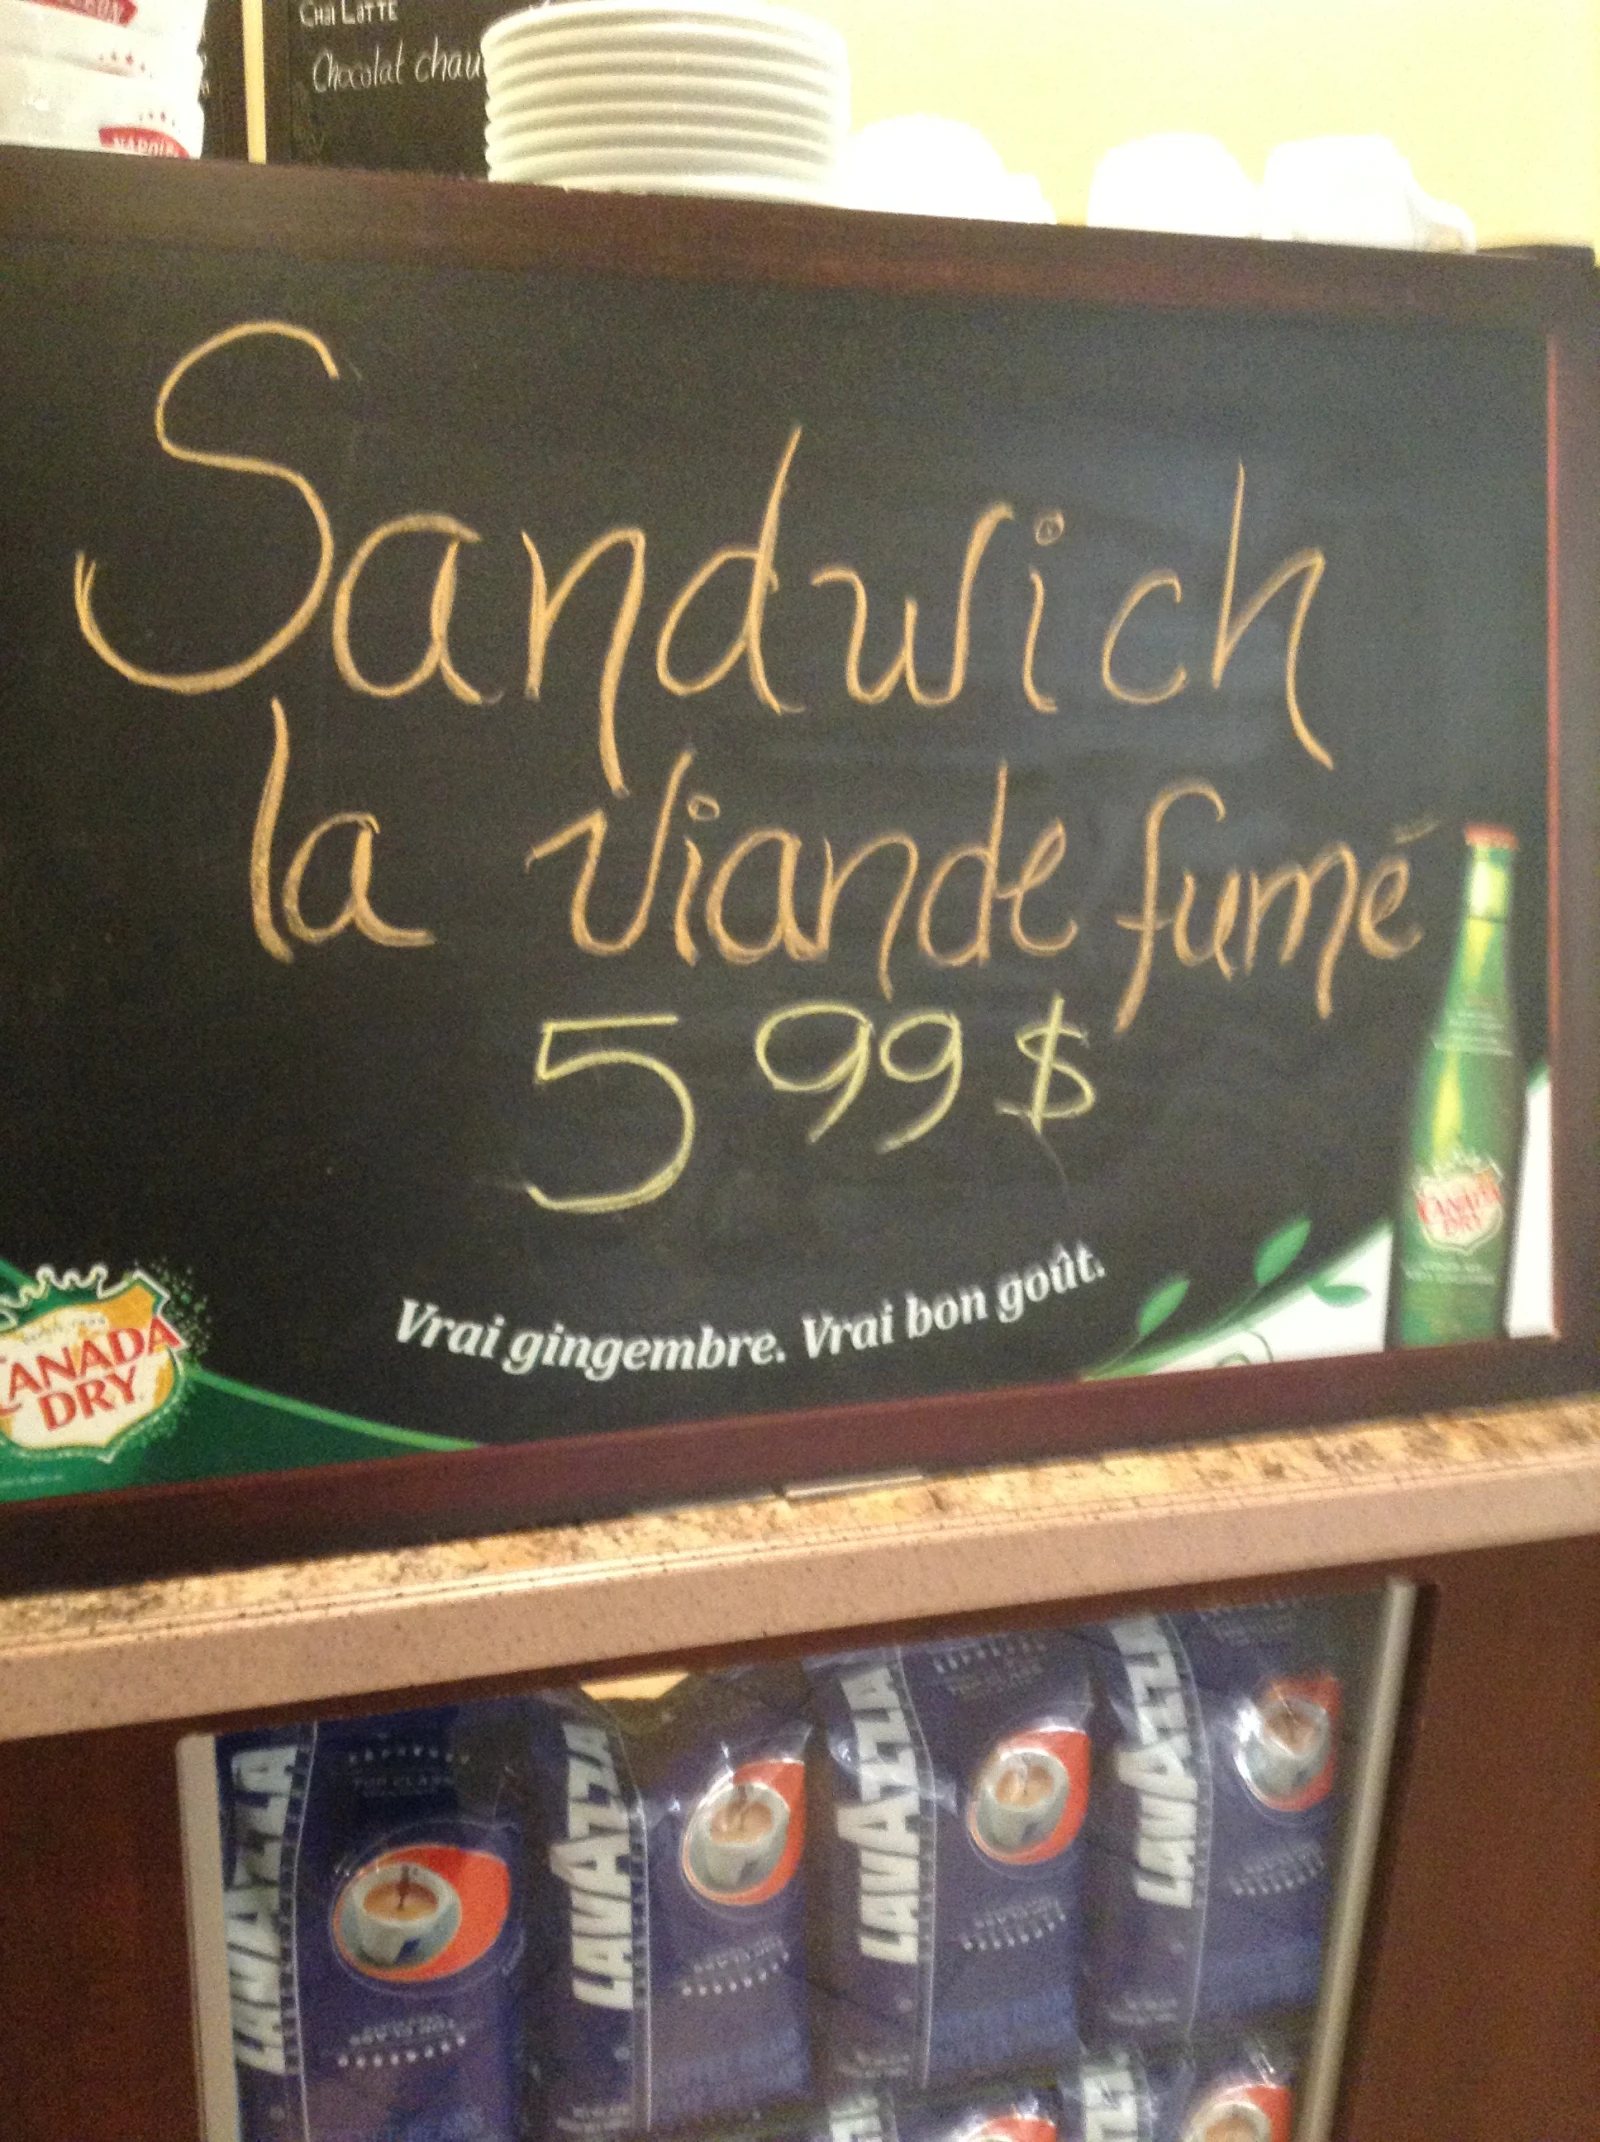 CHai LaTTE
Chocolat chau
Sandwich
la viande fumé
5 99 $
Vrai gingembre. Vrai bon goût.
CANADA
DRY
CANADA
DRY
LAVAZZA
LAVAZZA
LAVAZZA
LAVAZZA